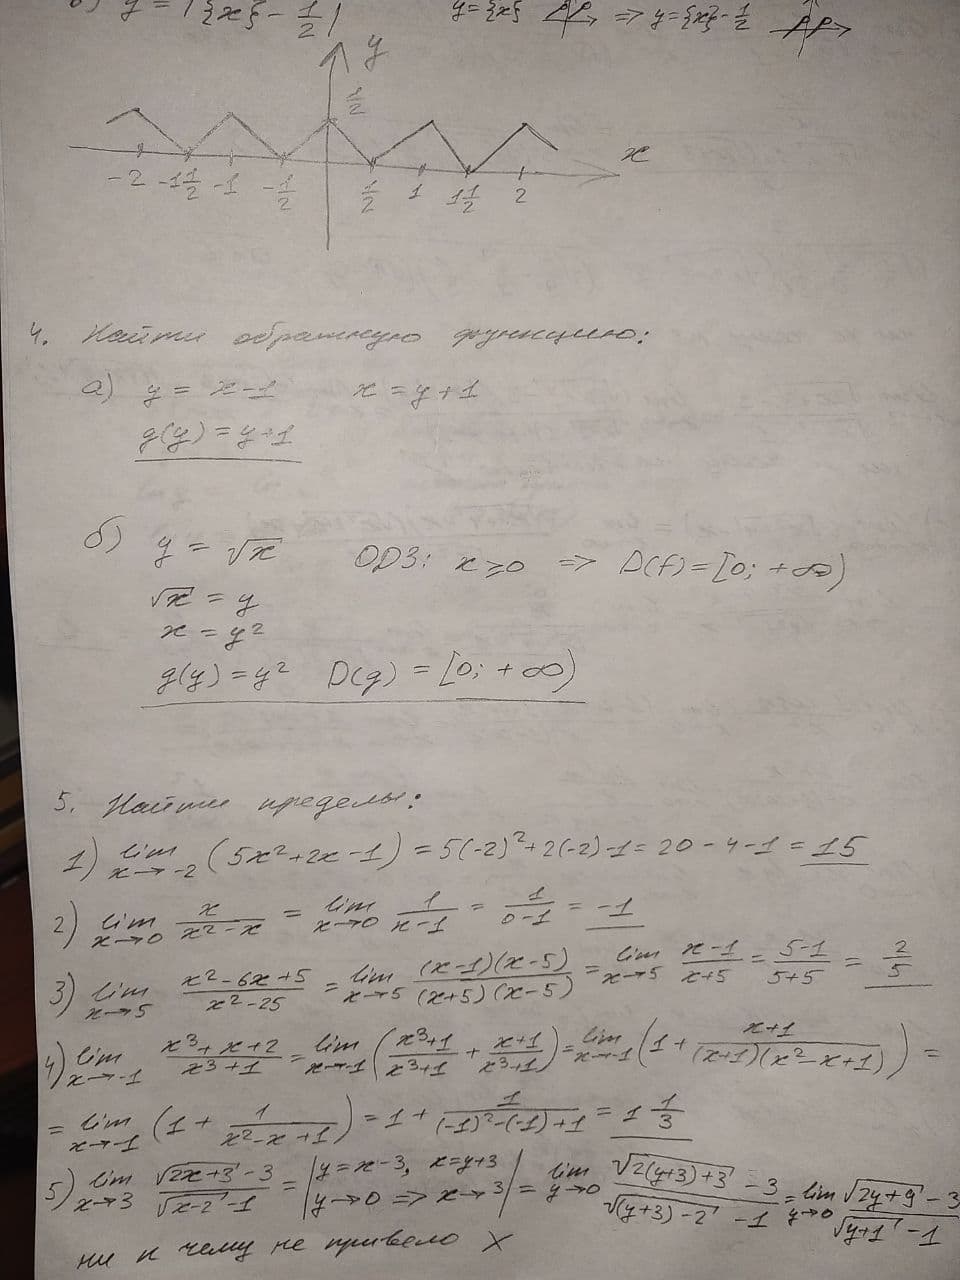 б) y = |{x} - 1/2| y = {x} => y = {x} - 1/2
y
1/2
x
-2 -1 1/2 -1 -1/2 1/2 1 1 1/2 2
4. Найти обратную функцию:
а) y = x - 1 x = y + 1
g(y) = y + 1
б) y = √x ОДЗ: x ⩾ 0 => D(f) = [0; +∞)
√x = y
x = y²
g(y) = y² D(g) = [0; +∞)
5. Найти пределы:
1) lim x→-2 (5x² + 2x - 1) = 5(-2)² + 2(-2) - 1 = 20 - 4 - 1 = 15
2) lim x→0 x/(x² - x) = lim x→0 1/(x - 1) = 1/(0 - 1) = -1
3) lim x→5 (x² - 6x + 5)/(x² - 25) = lim x→5 ((x - 1)(x - 5))/((x + 5)(x - 5)) = lim x→5 (x - 1)/(x + 5) = (5 - 1)/(5 + 5) = 2/5
4) lim x→-1 (x³ + x + 2)/(x³ + 1) = lim x→-1 ((x³ + 1)/(x³ + 1) + (x + 1)/(x³ + 1)) = lim x→-1 (1 + (x + 1)/((x + 1)(x² - x + 1))) =
= lim x→-1 (1 + 1/(x² - x + 1)) = 1 + 1/((-1)² - (-1) + 1) = 1 1/3
5) lim x→3 (√(2x + 3) - 3)/(√(x - 2) - 1) = |y = x - 3, x = y + 3 y→0 => x→3| = lim y→0 (√(2(y + 3) + 3) - 3)/(√((y + 3) - 2) - 1) = lim y→0 (√(2y + 9) - 3)/(√(y + 1) - 1)
ни к чему не привело X